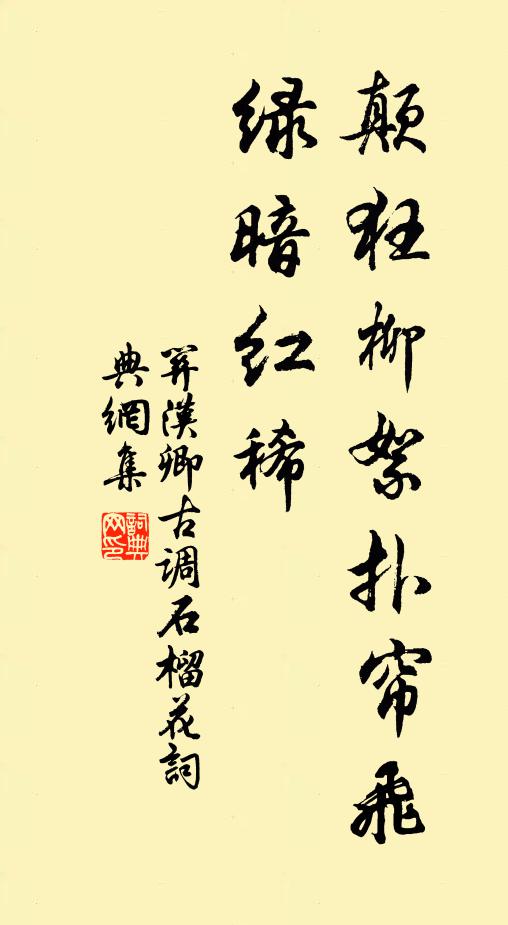 颠狂柳絮扑帘飞
绿暗红稀
关汉卿古调石榴花词
典網集
詞典网印